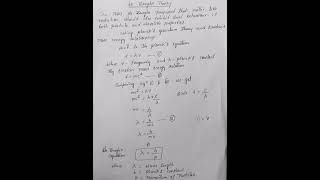 De Broglie Theory
In 1924 de Broglie proposed that matter like
radiation should also exhibit dual behaviour i.e
both particle and wavelike properties.
Using planck's quantum theory and Einstein's
mass energy relationship
Acc. to the planck's equation
E = hν — ①
Where ν = frequency and h = planck's constant
By Einstein mass energy relation
E = mc² — ②
Comparing eqn ① & ② we get
mc² = hν
mc² = h × c/λ
mc = h/λ
λ = h/mc — ③
λ = h/mv
De Broglie
Equation
λ = h/p
where λ = Wave length
h = Planck's Constant
p = Momentum of Particles